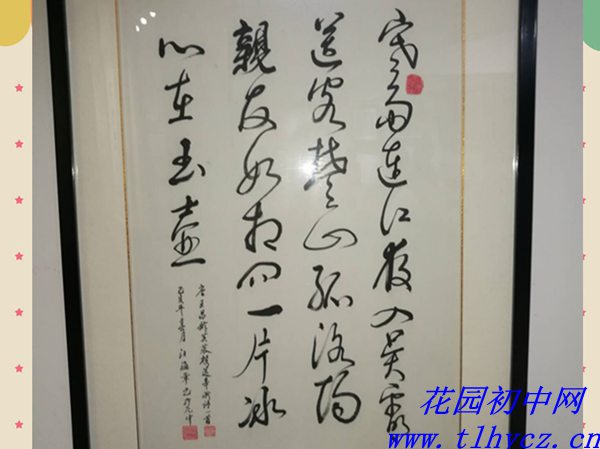 寒雨連江夜入吳平明
送客楚山孤洛陽
親友如相问一片冰
心在玉壺
唐王昌齡芙蓉樓送辛漸詩一首
己亥年 月
花园初中网
www.tlhycz.cn